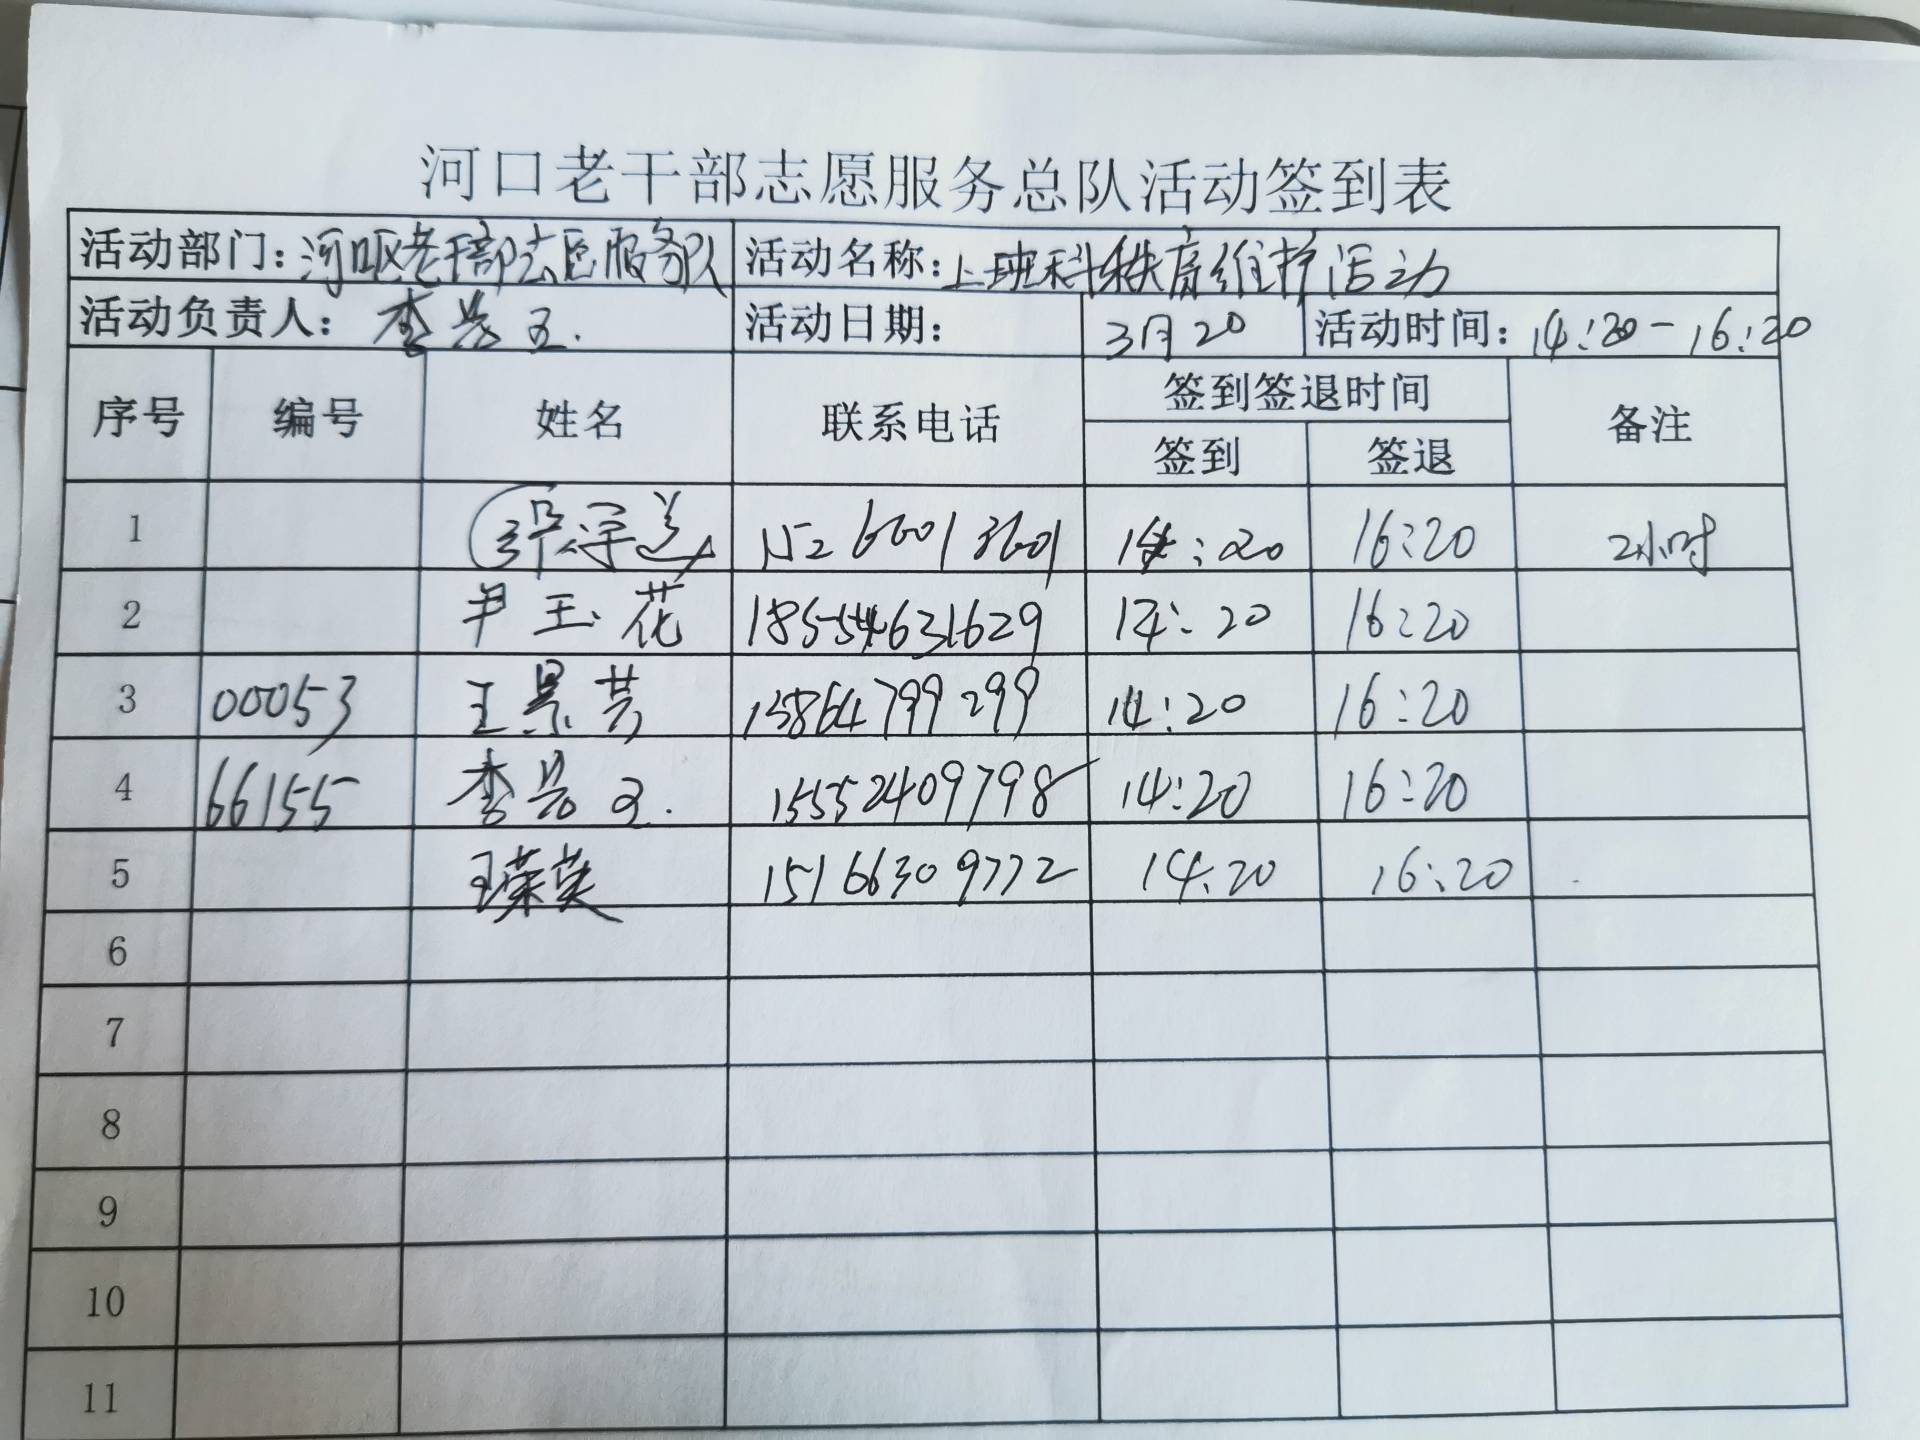 河口老干部志愿服务总队活动签到表
活动部门：河口区老干部志愿服务队 活动名称：上班科秩序维护活动
活动负责人： 活动日期： 3月20 活动时间：14:20-16:20
序号 编号 姓名 联系电话 签到签退时间 备注
签到 签退
1 15266013601 14:20 16:20 2小时
2 尹玉花 18554631629 14:20 16:20
3 00053 王景芸 15864799299 14:20 16:20
4 66155 15552409798 14:20 16:20
5 王荣英 15166309772 14:20 16:20
6
7
8
9
10
11